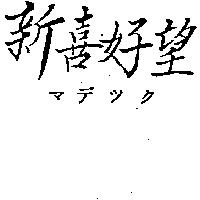 新喜好望
マデツク